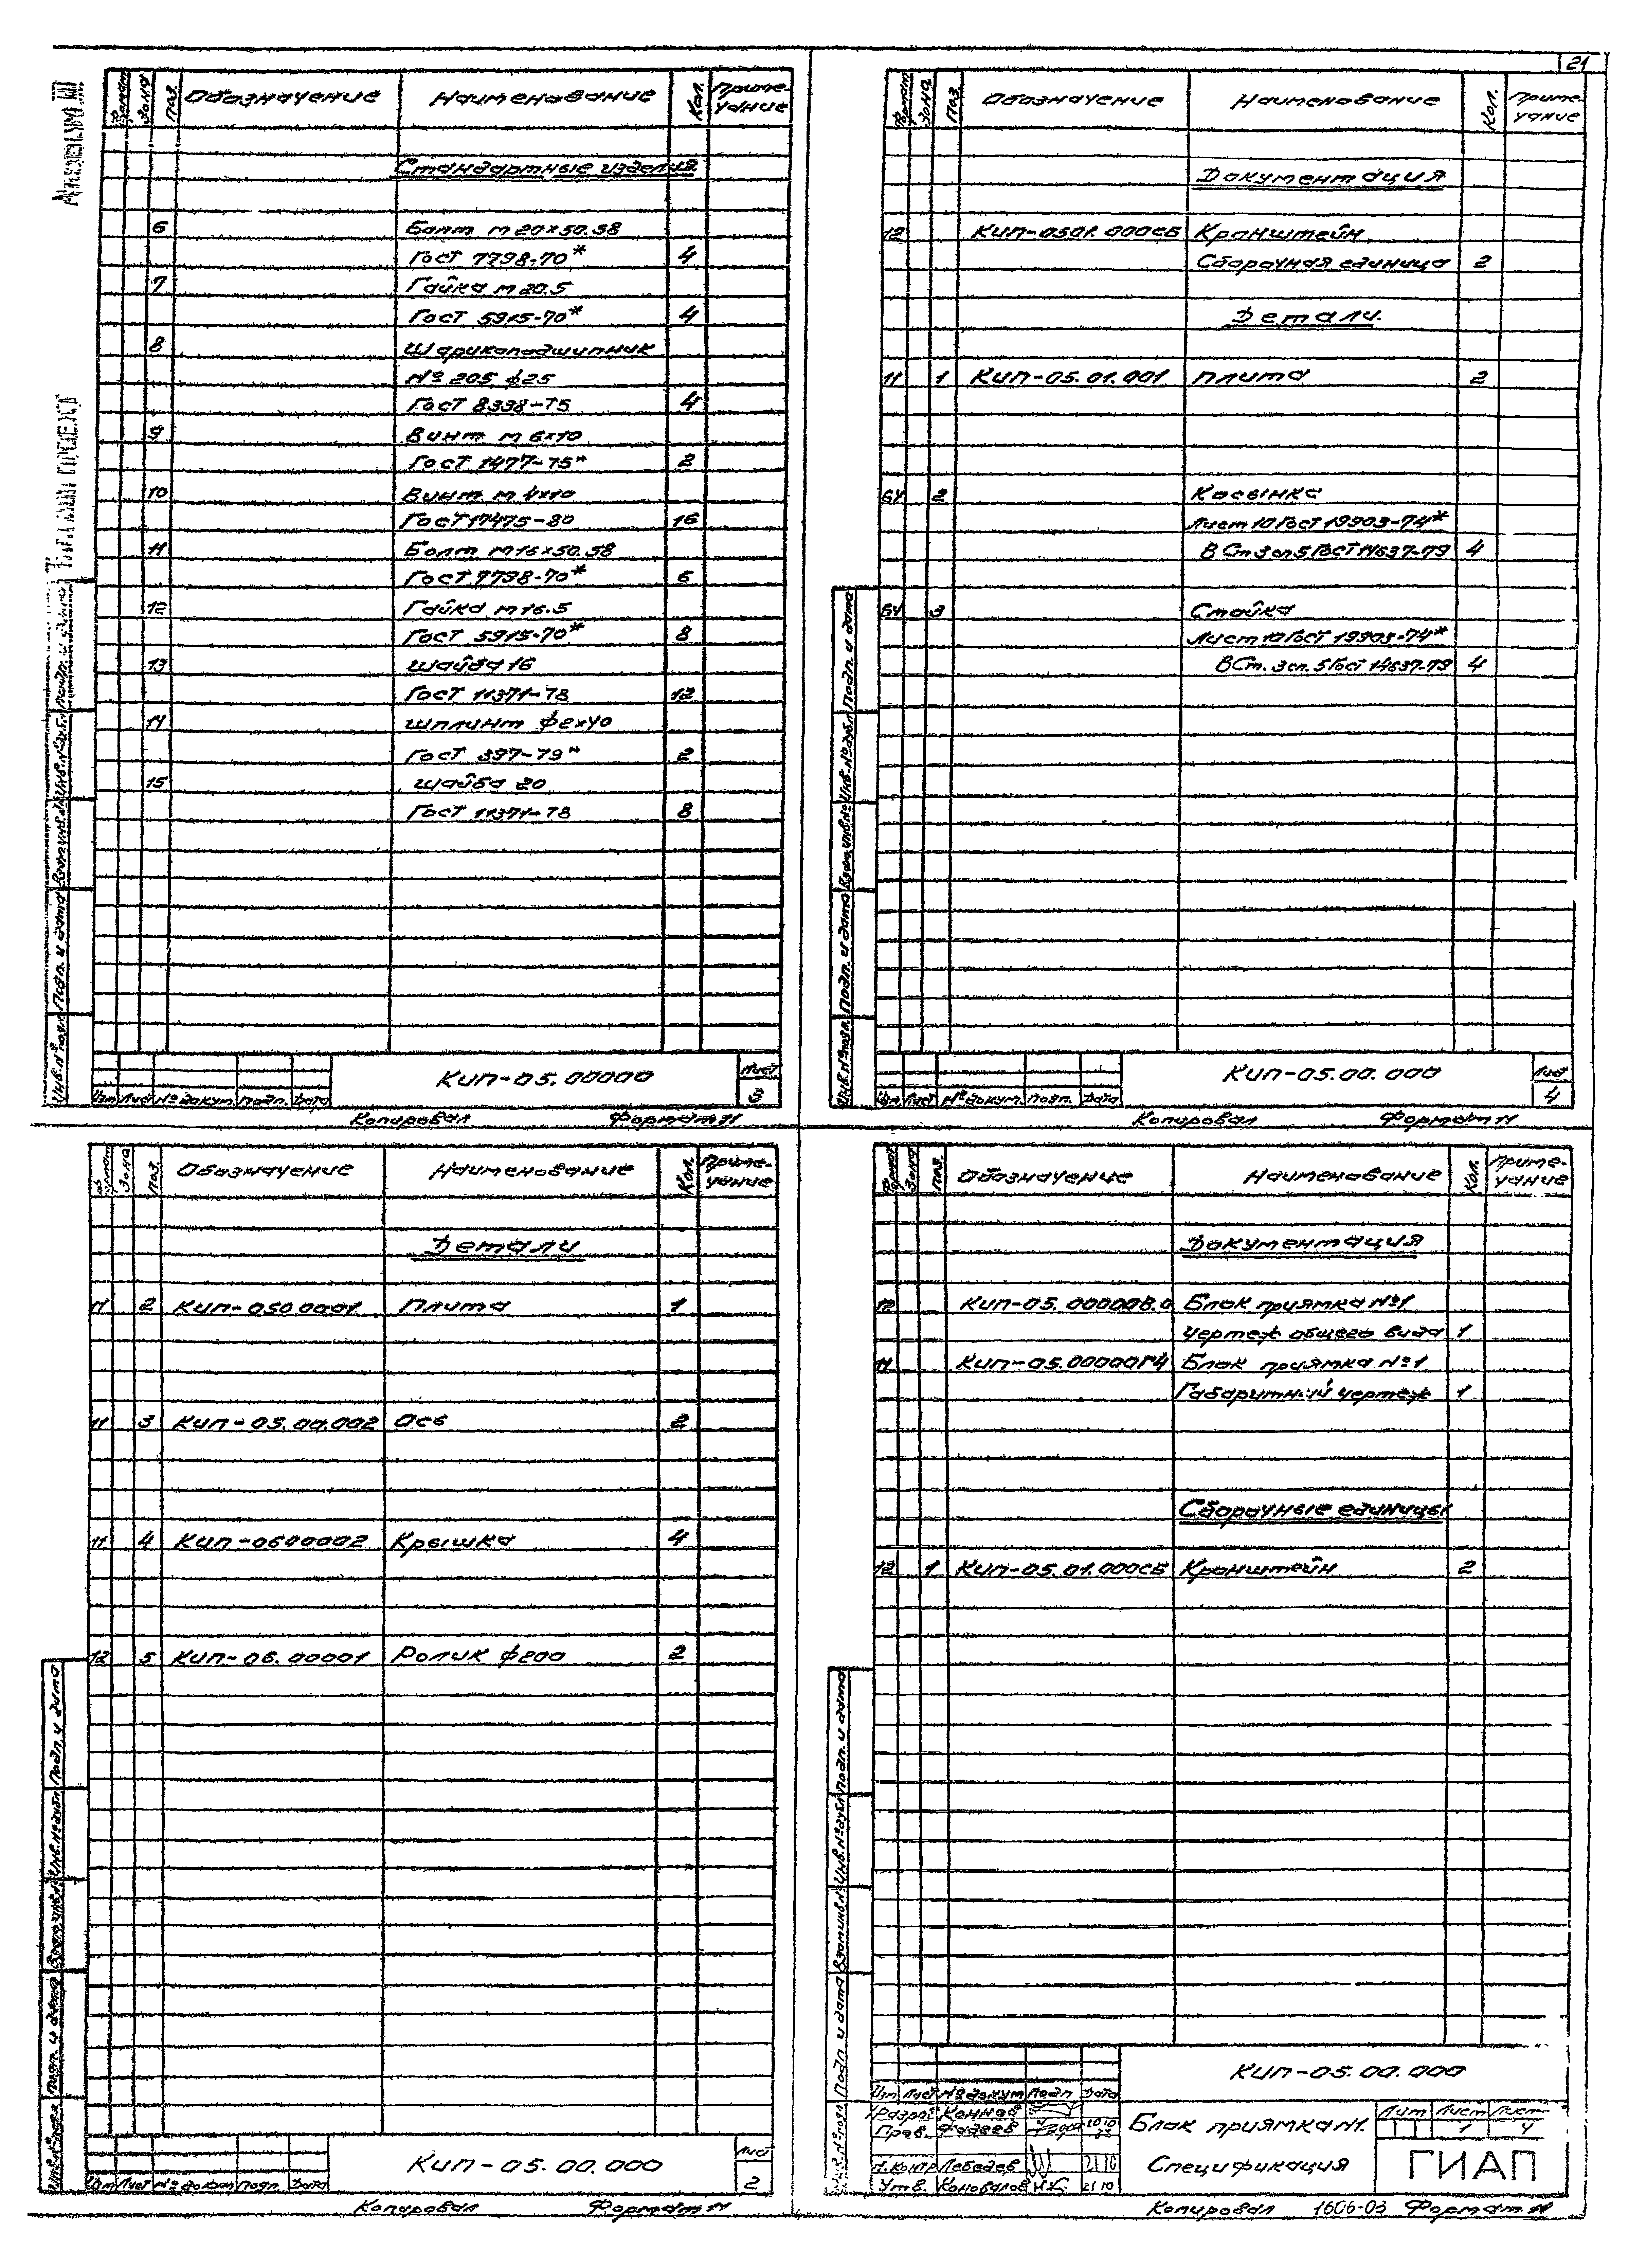 21
Формат Зона Поз. Обозначение Наименование Кол. Приме-чание
Стандартные изделия
6 Болт М20×50.58
Гост 7798-70* 4
7 Гайка М20.5
Гост 5915-70* 4
8 Шарикоподшипник
№ 205 ф25
Гост 8338-75 4
9 Винт М6×10
Гост 1477-75* 2
10 Винт М4×10
Гост 17475-80 16
11 Болт М16×50.58
Гост 7798-70* 6
12 Гайка М16.5
Гост 5915-70* 8
13 Шайба 16
Гост 11371-78 12
14 Шплинт ф2×40
Гост 397-79* 2
15 Шайба 20
Гост 11371-78 8
Инв.№ подл. Подп. и дата Взам.инв.№ Инв.№ дубл. Подп. и дата
КИП-05.00000
Лист
3
Изм Лист № докум. Подп. Дата
Копировал Формат 11
Формат Зона Поз. Обозначение Наименование Кол. Приме-чание
Документация
12 КИП-0501.000СБ Кронштейн
Сборочная единица 2
Детали.
11 1 КИП-05.01.001 Плита 2
БЧ 2 Косынка
Лист 10 Гост 19903-74*
В Ст 3 сп 5 Гост 14637-79 4
БЧ 3 Стойка
Лист 10 Гост 19903-74*
В Ст. 3 сп. 5 Гост 14637-79 4
Инв.№ подл. Подп. и дата Взам.инв.№ Инв.№ дубл. Подп. и дата
КИП-05.00.000
Лист
4
Изм Лист № докум. Подп. Дата
Копировал Формат 11
Формат Зона Поз. Обозначение Наименование Кол. Приме-чание
Детали
11 2 КИП-0500001 Плита 1
11 3 КИП-05.00.002 Ось 2
11 4 КИП-0600002 Крышка 4
12 5 КИП-06.00001 Ролик ф200 2
Инв.№ подл. Подп. и дата Взам.инв.№ Инв.№ дубл. Подп. и дата
КИП-05.00.000
Лист
2
Изм Лист № докум Подп. Дата
Копировал Формат 11
Формат Зона Поз. Обозначение Наименование Кол. Приме-чание
Документация
12 КИП-05.00000В.О Блок приямка №1
Чертеж общего вида 1
11 КИП-05.00000ГЧ Блок приямка №1
Габаритный чертеж 1
Сборочные единицы
12 1 КИП-05.01.000СБ Кронштейн 2
Инв.№ подл Подп и дата Взам.инв.№ Инв.№ дубл Подп. и дата
КИП-05.00.000
Изм Лист № докум Подп Дата
Разраб
Пров. Фадеев
Блок приямка №1.
Спецификация
Лит Лист Лист
1 4
Н.контр Лебедев 2110
Утв. Коновалов 2110
ГИАП
Копировал 1606-03 Формат 11